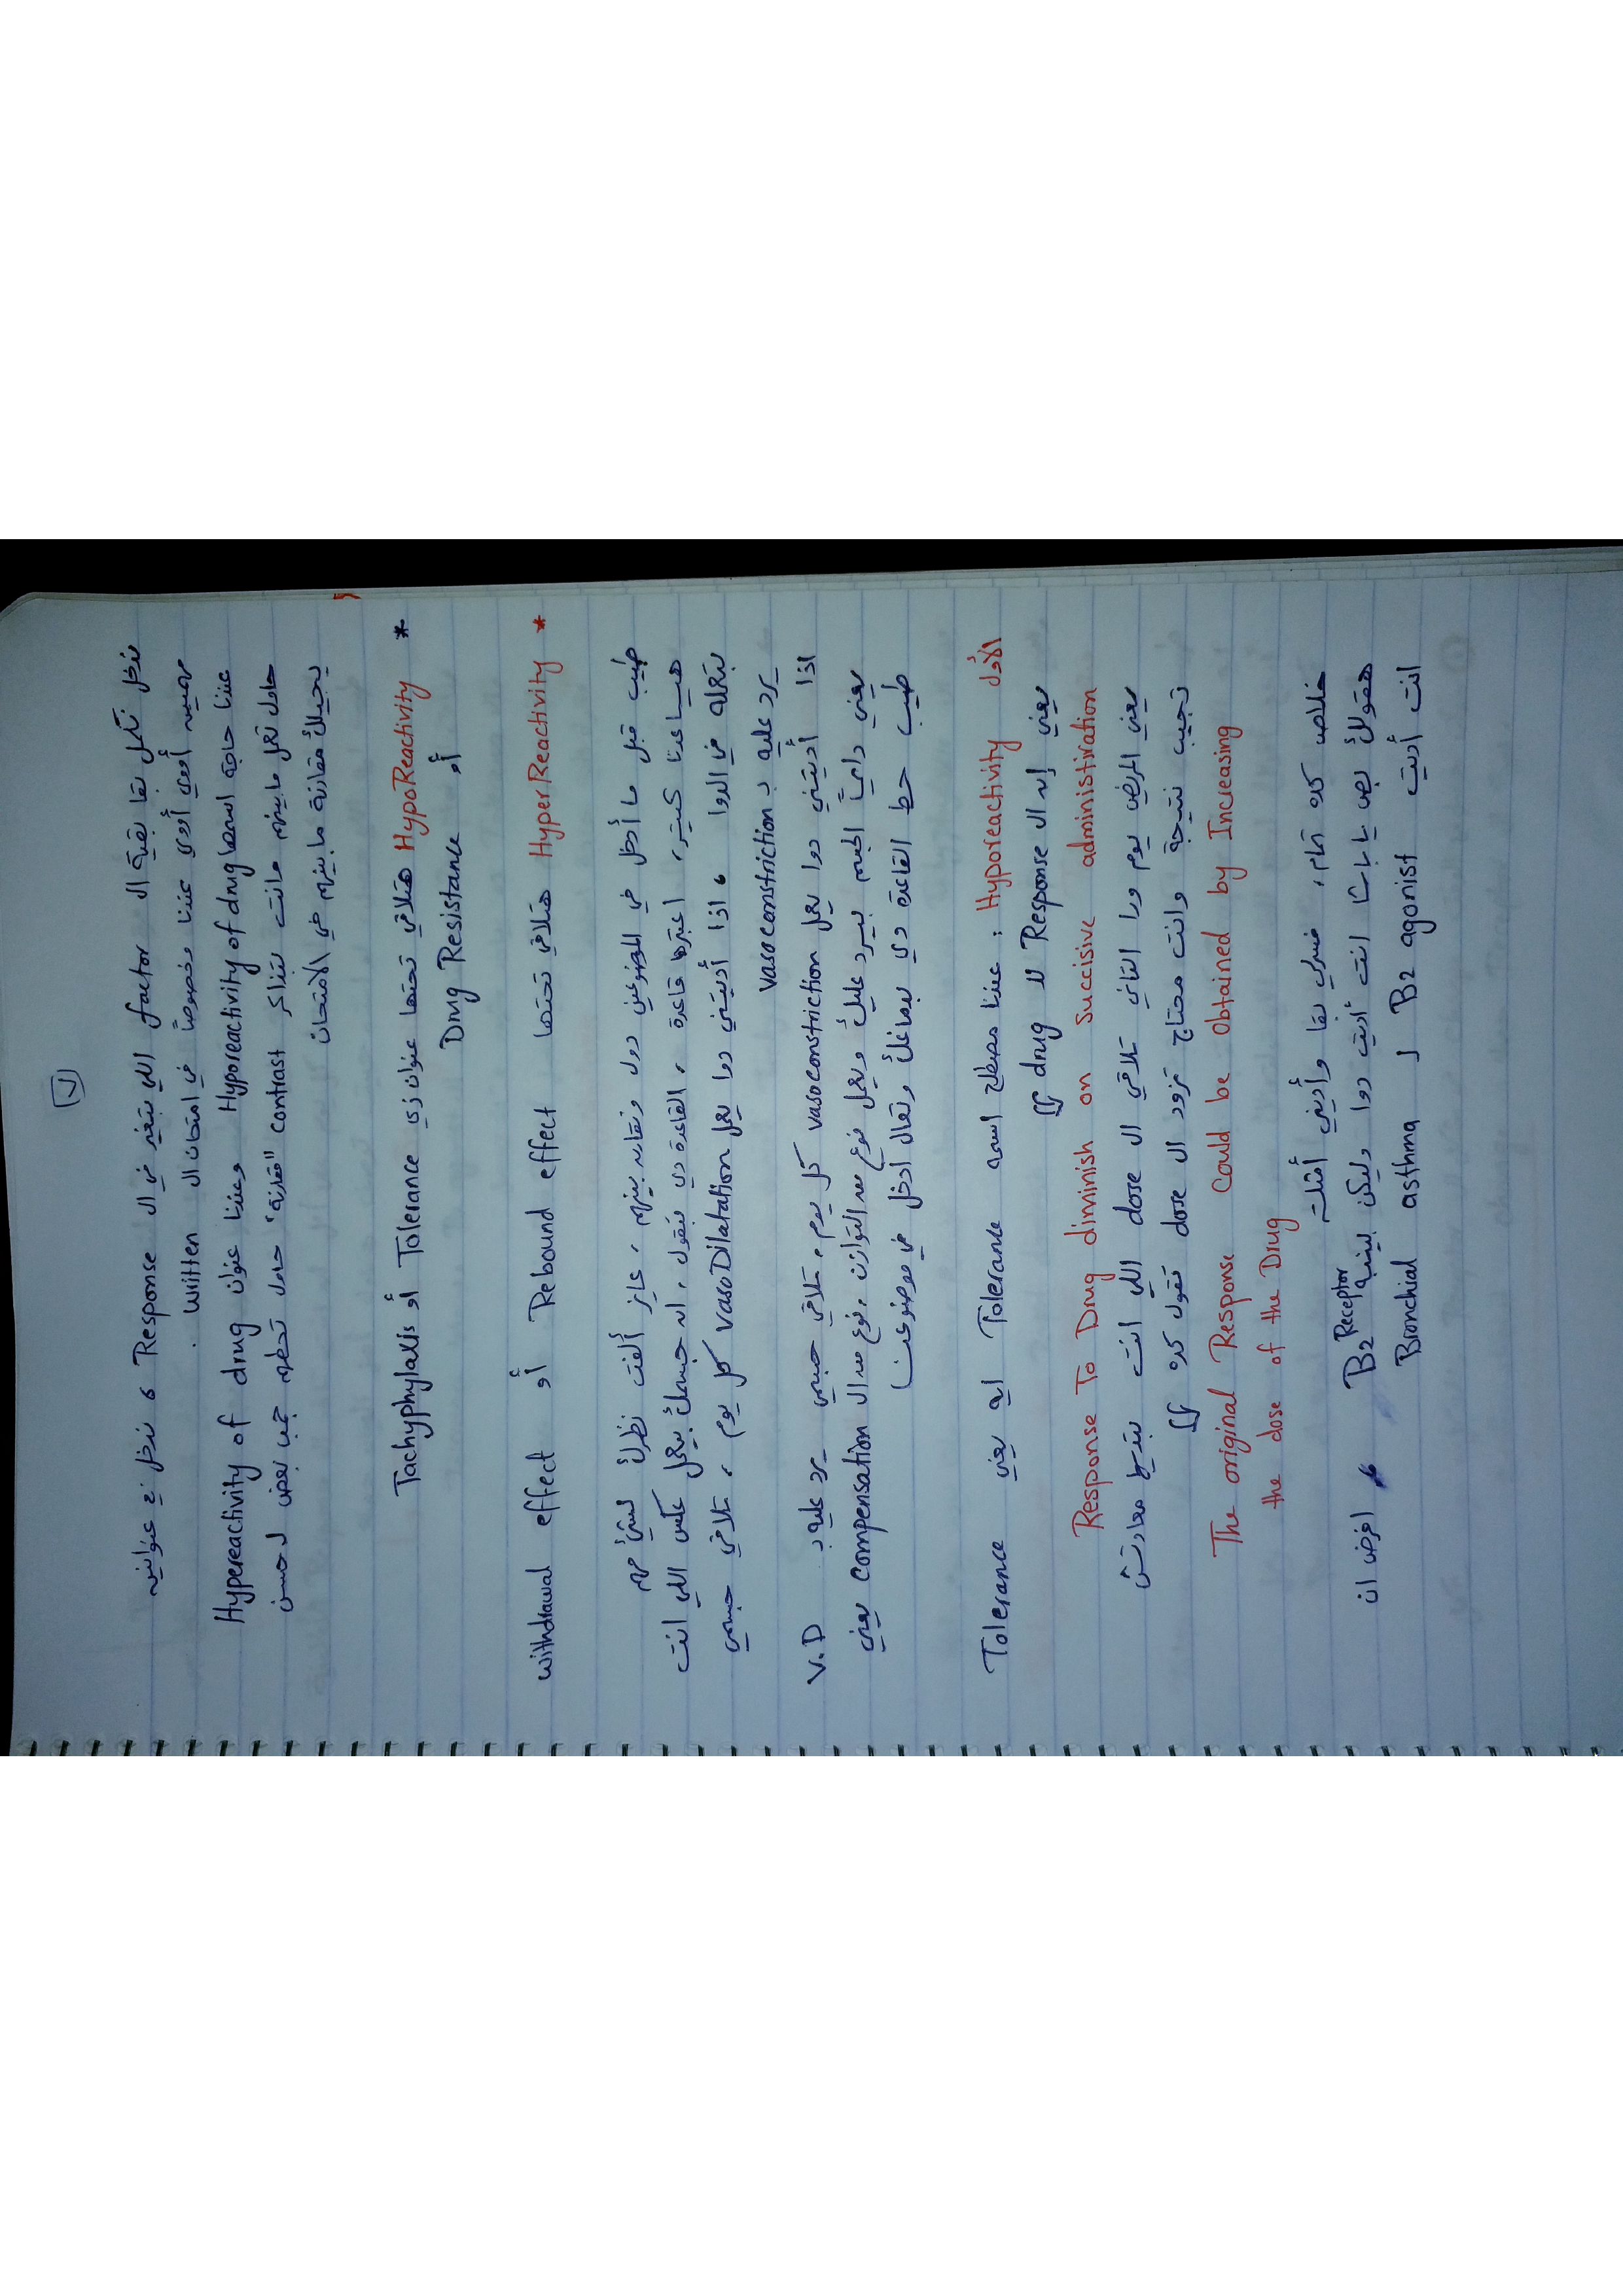 ٧
ندخل نكمل بقا بقية ال factor اللي بتغير في ال Response ، ندخل ع عنوانين
مهمين أووي أووي عندنا وخصوصاً في امتحان ال written .
عندنا حاجة اسمها Hyporeactivity of drug وعندنا عنوان Hypereactivity of drug
حاول تعمل مابينهم وانت بتذاكر contrast "مقارنة" حاول تحطهم جمب بعض لحسن
يجيلك مقارنة ما بينهم في الامتحان
* HypoReactivity هتلاقي تحتها عنوان زي Tolerance أو Tachyphylaxis
أو Drug Resistance
* HyperReactivity هتلاقي تحتها Rebound effect أو withdrawal effect
طيب قبل ما أدخل في الموضوعين دول ونقارن بينهم ، عايز ألفت نظرك لشئ مهم
هيساعدنا كتير ، اعتبرها قاعدة ، القاعدة دي بتقول ، ان جسمك بيعمل عكس اللي انت
بتعمله في الدوا ، اذا أديتني دوا يعمل vasoDilatation كل يوم ، تلاقي جسمي
يرد عليه ب vasoconstriction
اذا أديتني دوا يعمل vasoconstriction كل يوم ، تلاقي جسمي يرد عليه ب V.D
يعني دايماً الجسم بيرد عليك ويعمل نوع من التوازن ، نوع من ال compensation يعني
طيب حط القاعدة دي بدماغك وتعال ادخل في موضوعنا
الأول Hyporeactivity : عندنا مصطلح اسمه Tolerance ايه يعني Tolerance
يعني إن ال Response لل drug
Response To Drug diminish on succisive administiration
يعني المريض يوم ورا التاني تلاقي ال dose اللي انت بتديها معادتش
تجيب نتيجة وانت محتاج تزود ال dose فنقول كده
The original Response could be obtained by Increasing
the dose of the Drug
خلاص كده تمام ، فسرلي بقا وأديني أمثلة
هقولك بص يا باشا انت أديت دوا وليكن بينبه B2 Receptor ، افرض ان
انت أديت B2 agonist ل Bronchial asthma